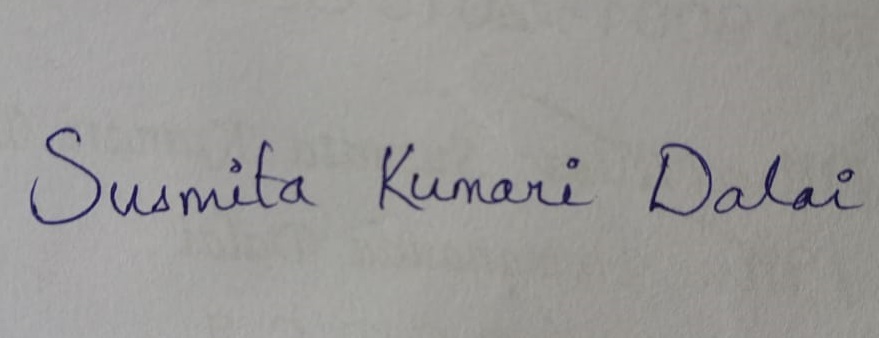 Susmita Kumari Dalai